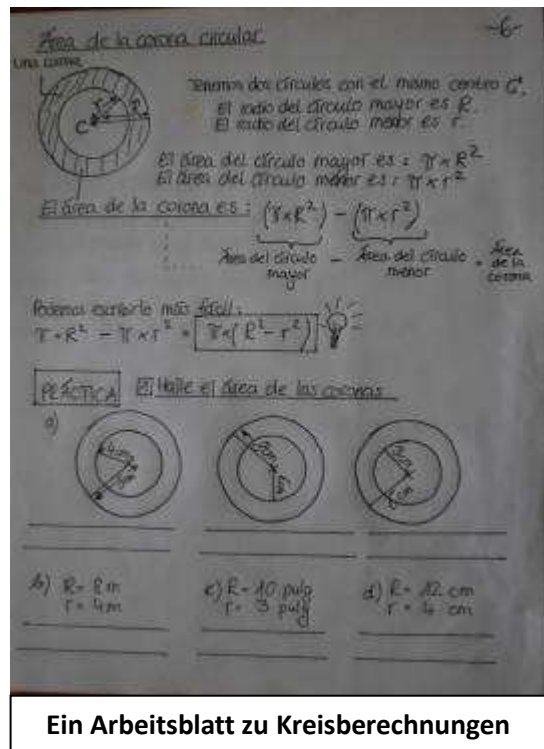 -6-
Área de la corona circular
Una corona
C r R
Tenemos dos círculos con el mismo centro C.
El radio del círculo mayor es R.
El radio del círculo menor es r.
El área del círculo mayor es : π × R²
El área del círculo menor es : π × r²
El área de la corona es : (π×R²) - (π×r²)
Área del círculo mayor - Área del círculo menor = Área de la corona
Podemos escribirlo más fácil :
π × R² - π × r² = π×(R² - r²)
PRÁCTICA Halle el área de las coronas
a)
4cm
b) R= 8 m
r= 4m
c) R= 10 pulg
r= 3 pulg
d) R= 12 cm
r= 4 cm
Ein Arbeitsblatt zu Kreisberechnungen